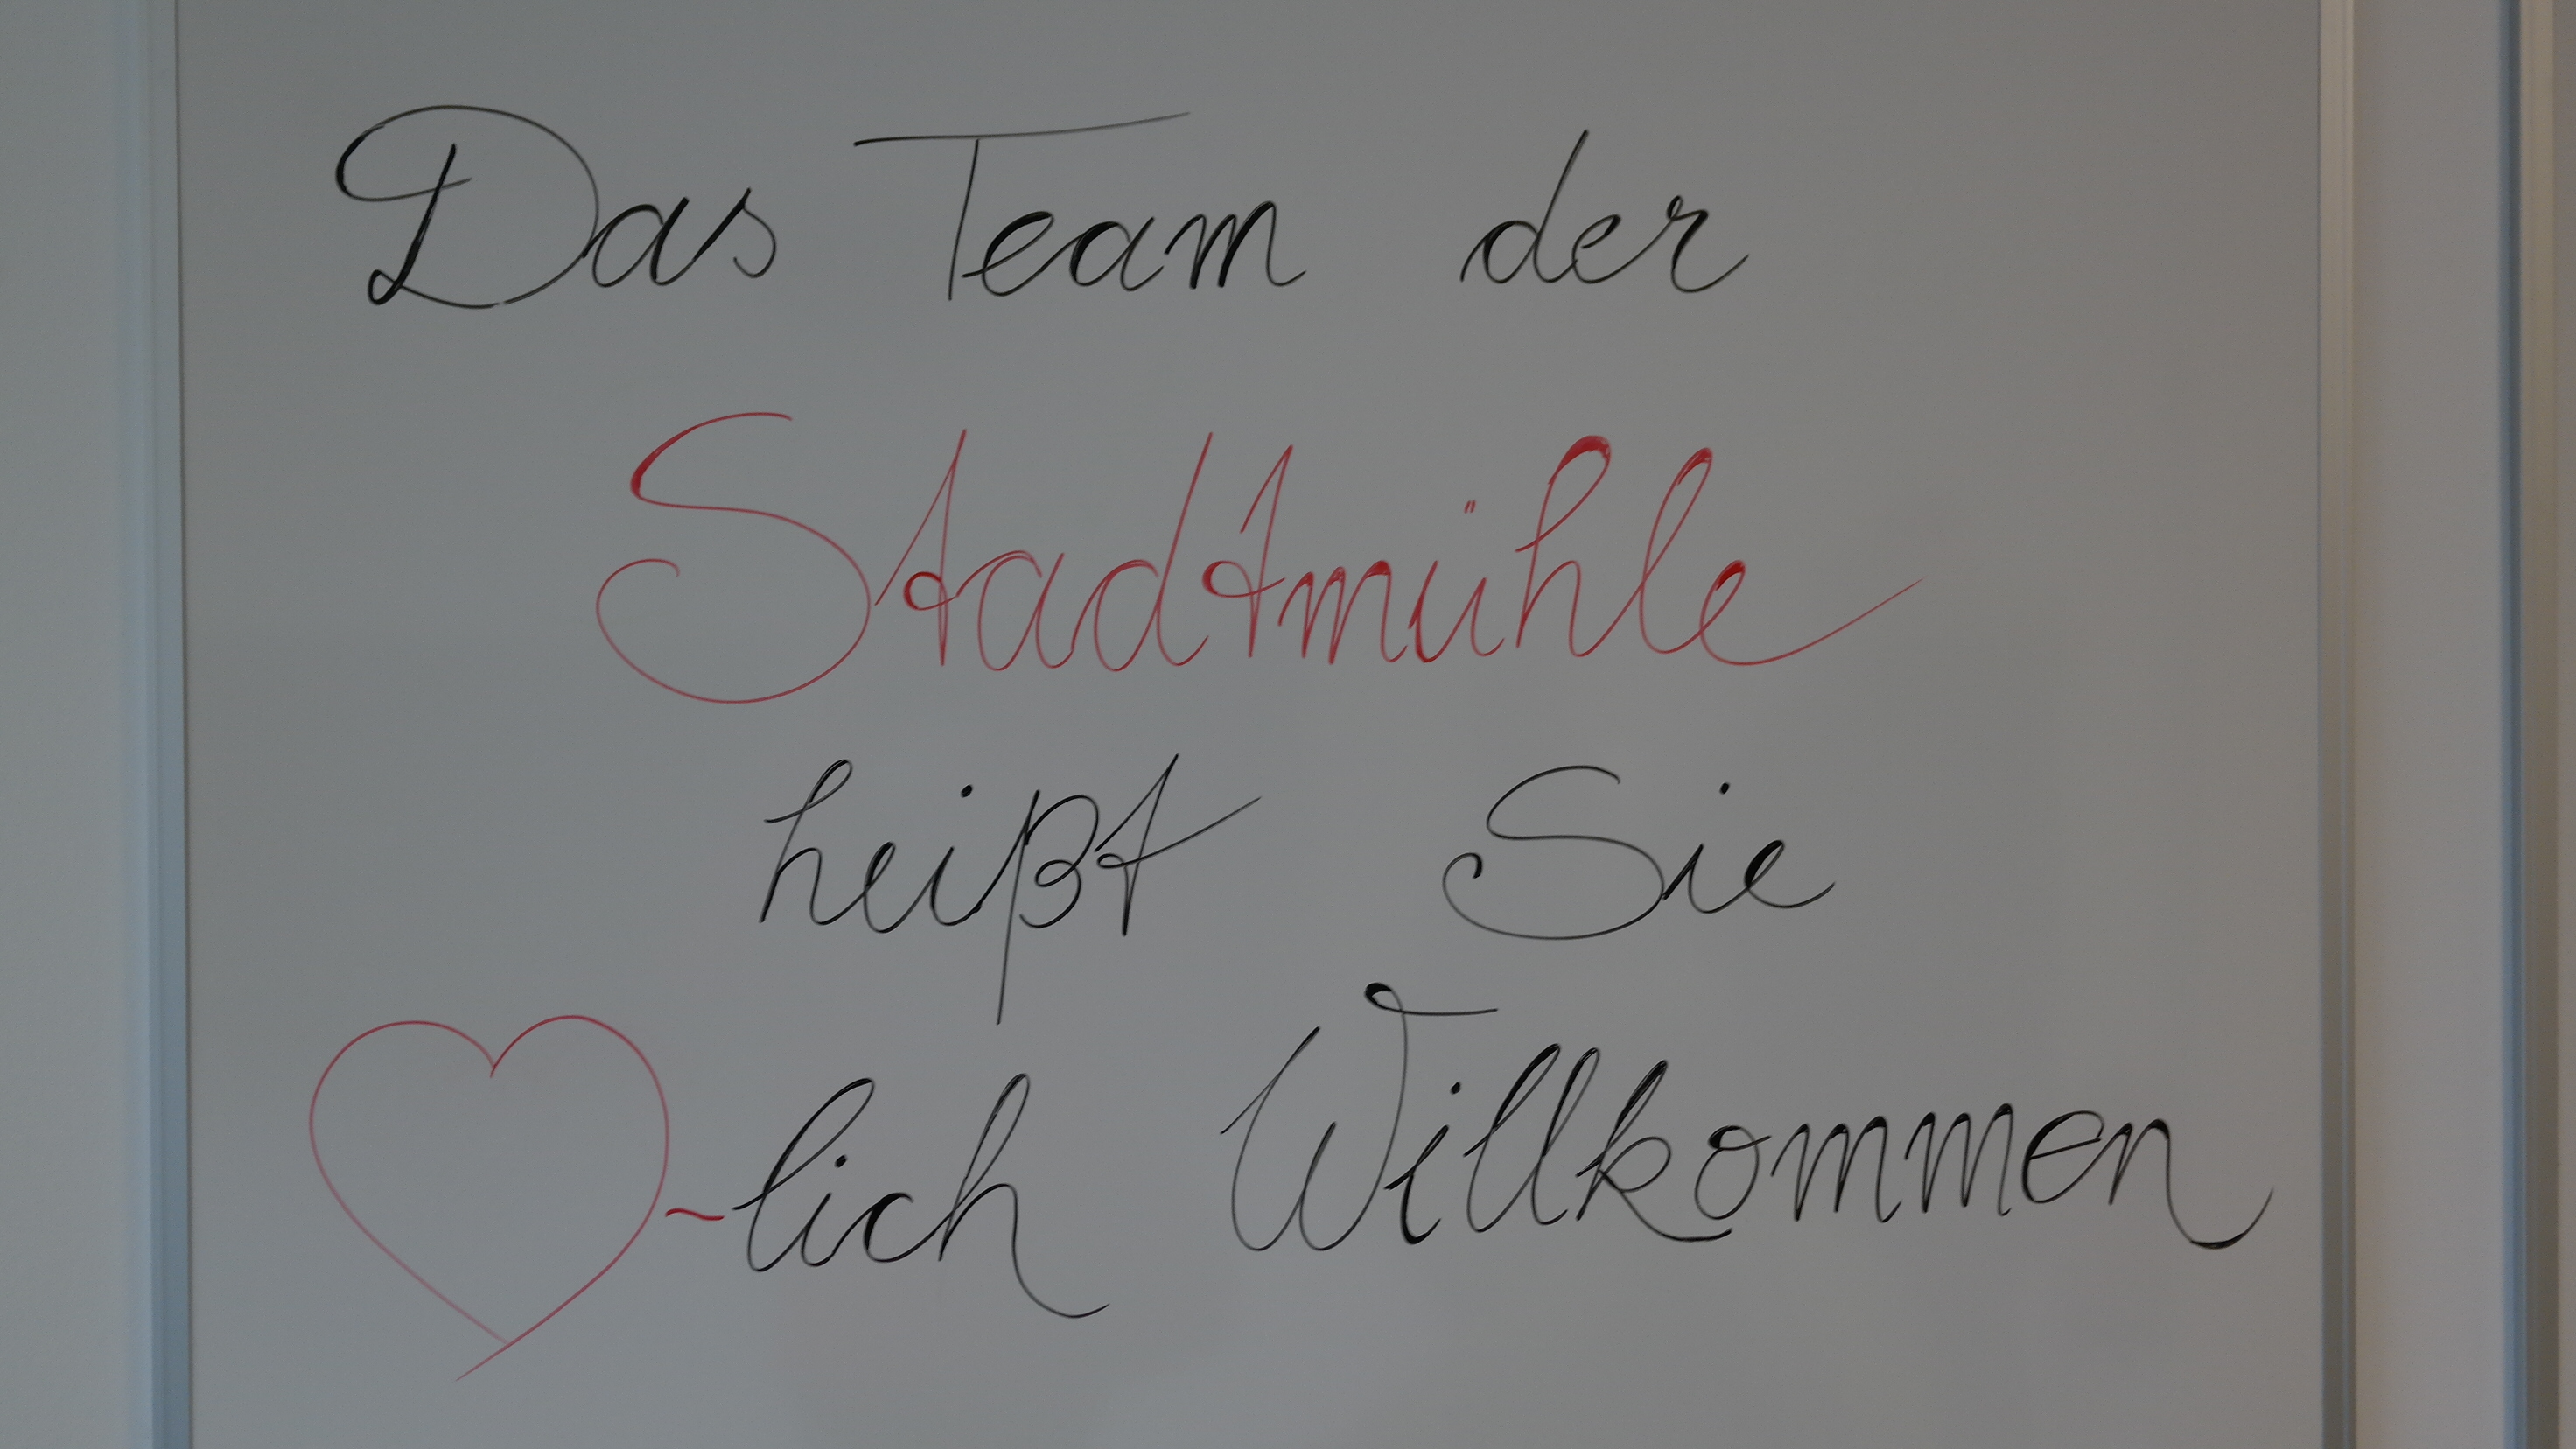 Das Team der
Stadtmühle
heißt Sie
♡~lich Willkommen